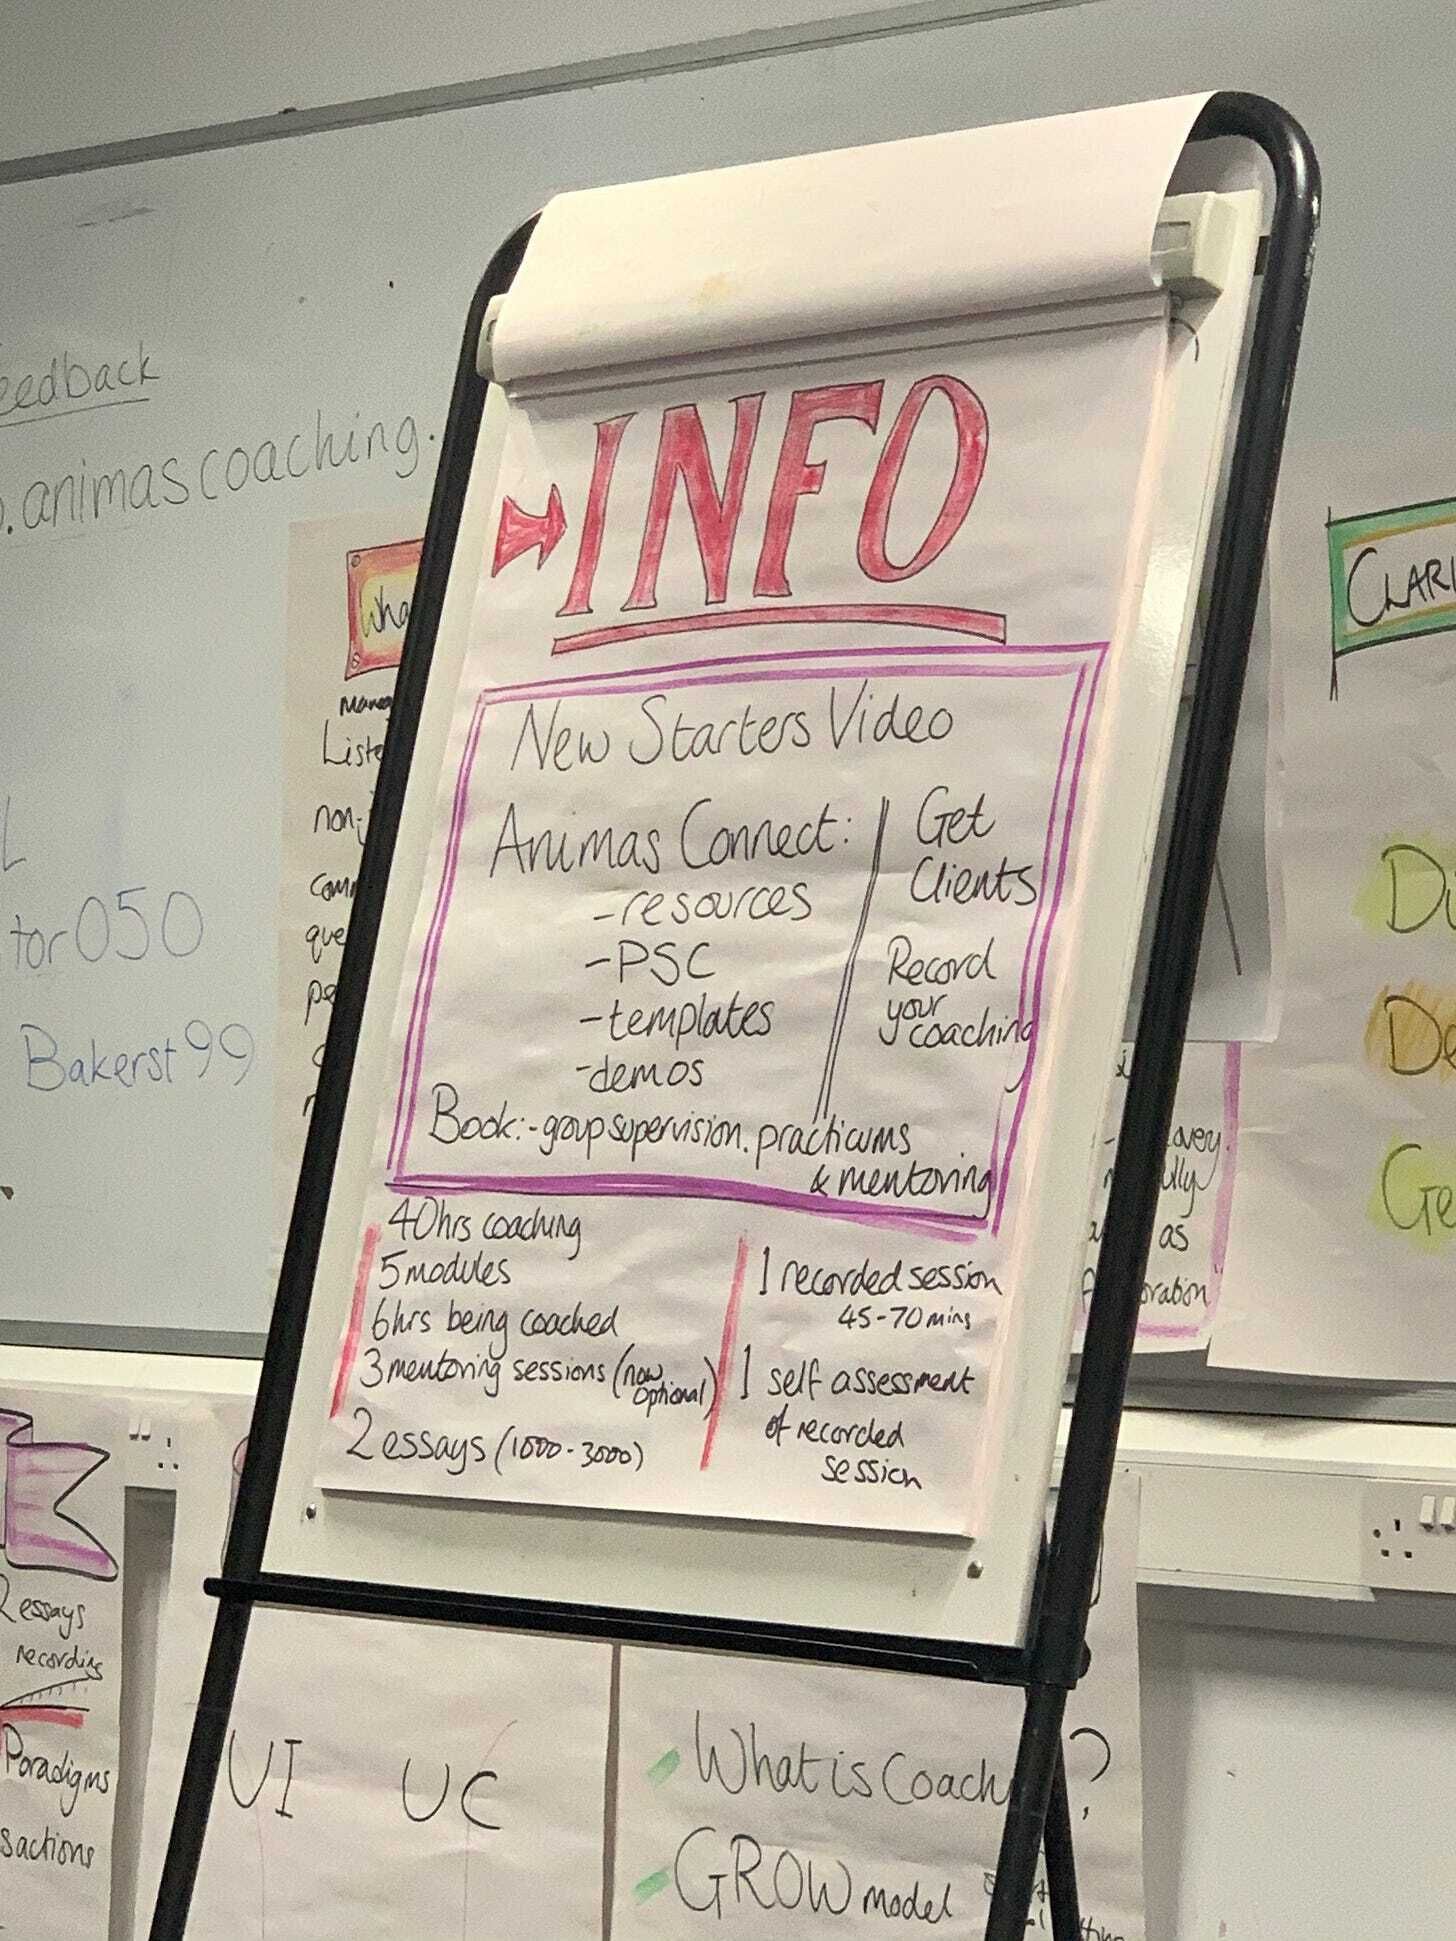 eedback
.animascoaching.
L
tor050
Bakerst99
Wha
Liste
non-j
INFO
New Starters Video
Animas Connect:
-resources
-PSC
-templates
-demos
Get
Clients
Record
your
coaching
Book:-group supervision. practicums
& mentoring
40hrs coaching
5 modules
6hrs being coached
3 mentoring sessions (now
optional)
2 essays (1000-3000)
1 recorded session
45-70 mins
1 self assessment
of recorded
session
CLARI
Di
De
Ge
as
2 essays
recording
Paradigms
sactions
UI UC
What is Coach ?
GROW model